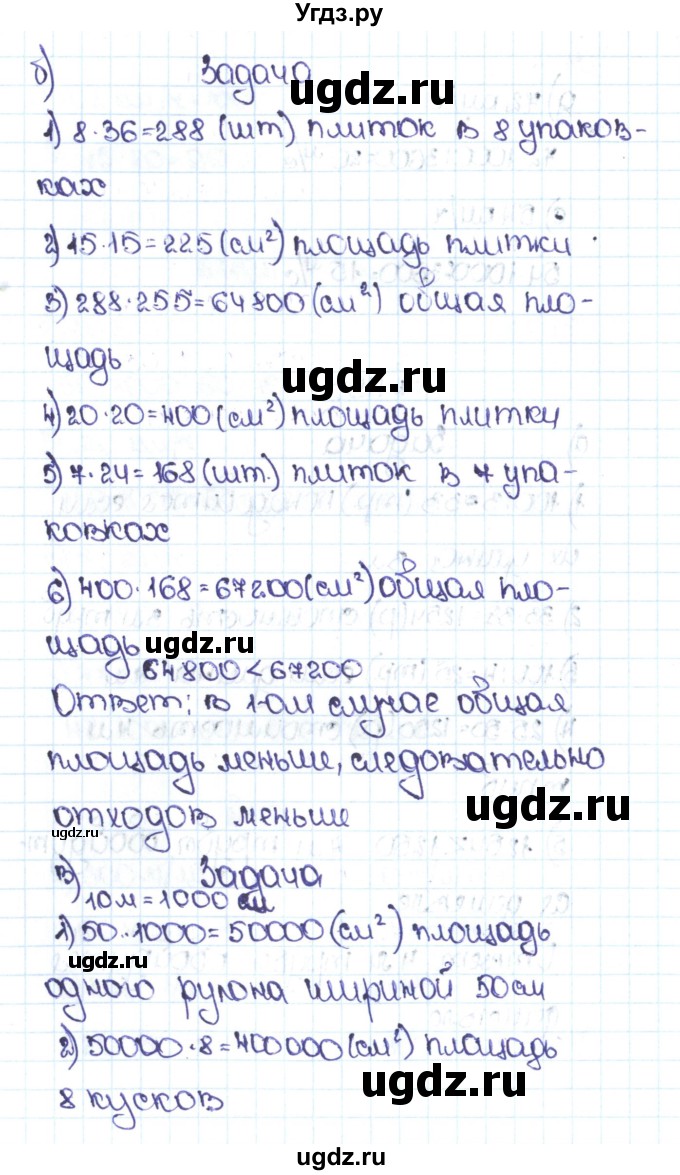 Угдз.ру
б) Задача
ugdz.ru
1) 8·36=288 (шт) плиток в 8 упаков-
ках
2) 15·15=225 (см²) площадь плитки
3) 288·255=64800 (см²) общая пло-
щадь
ugdz.ru
4) 20·20=400 (см²) площадь плитки
5) 7·24=168 (шт.) плиток в 7 упа-
ковках
6) 400·168=67200 (см²) общая пло-
щадь ugdz.ru
64800<67200
Ответ: в 1-ом случае общая
площадь меньше, следовательно
ugdz.ru
отходов меньше
ugdz.ru
в) Задача
10м=1000 см
1) 50·1000=50000 (см²) площадь
ugdz.ru
одного рулона шириной 50см
2) 50000·8=400000 (см²) площадь
ugdz.ru
8 кусков
ugdz.ru